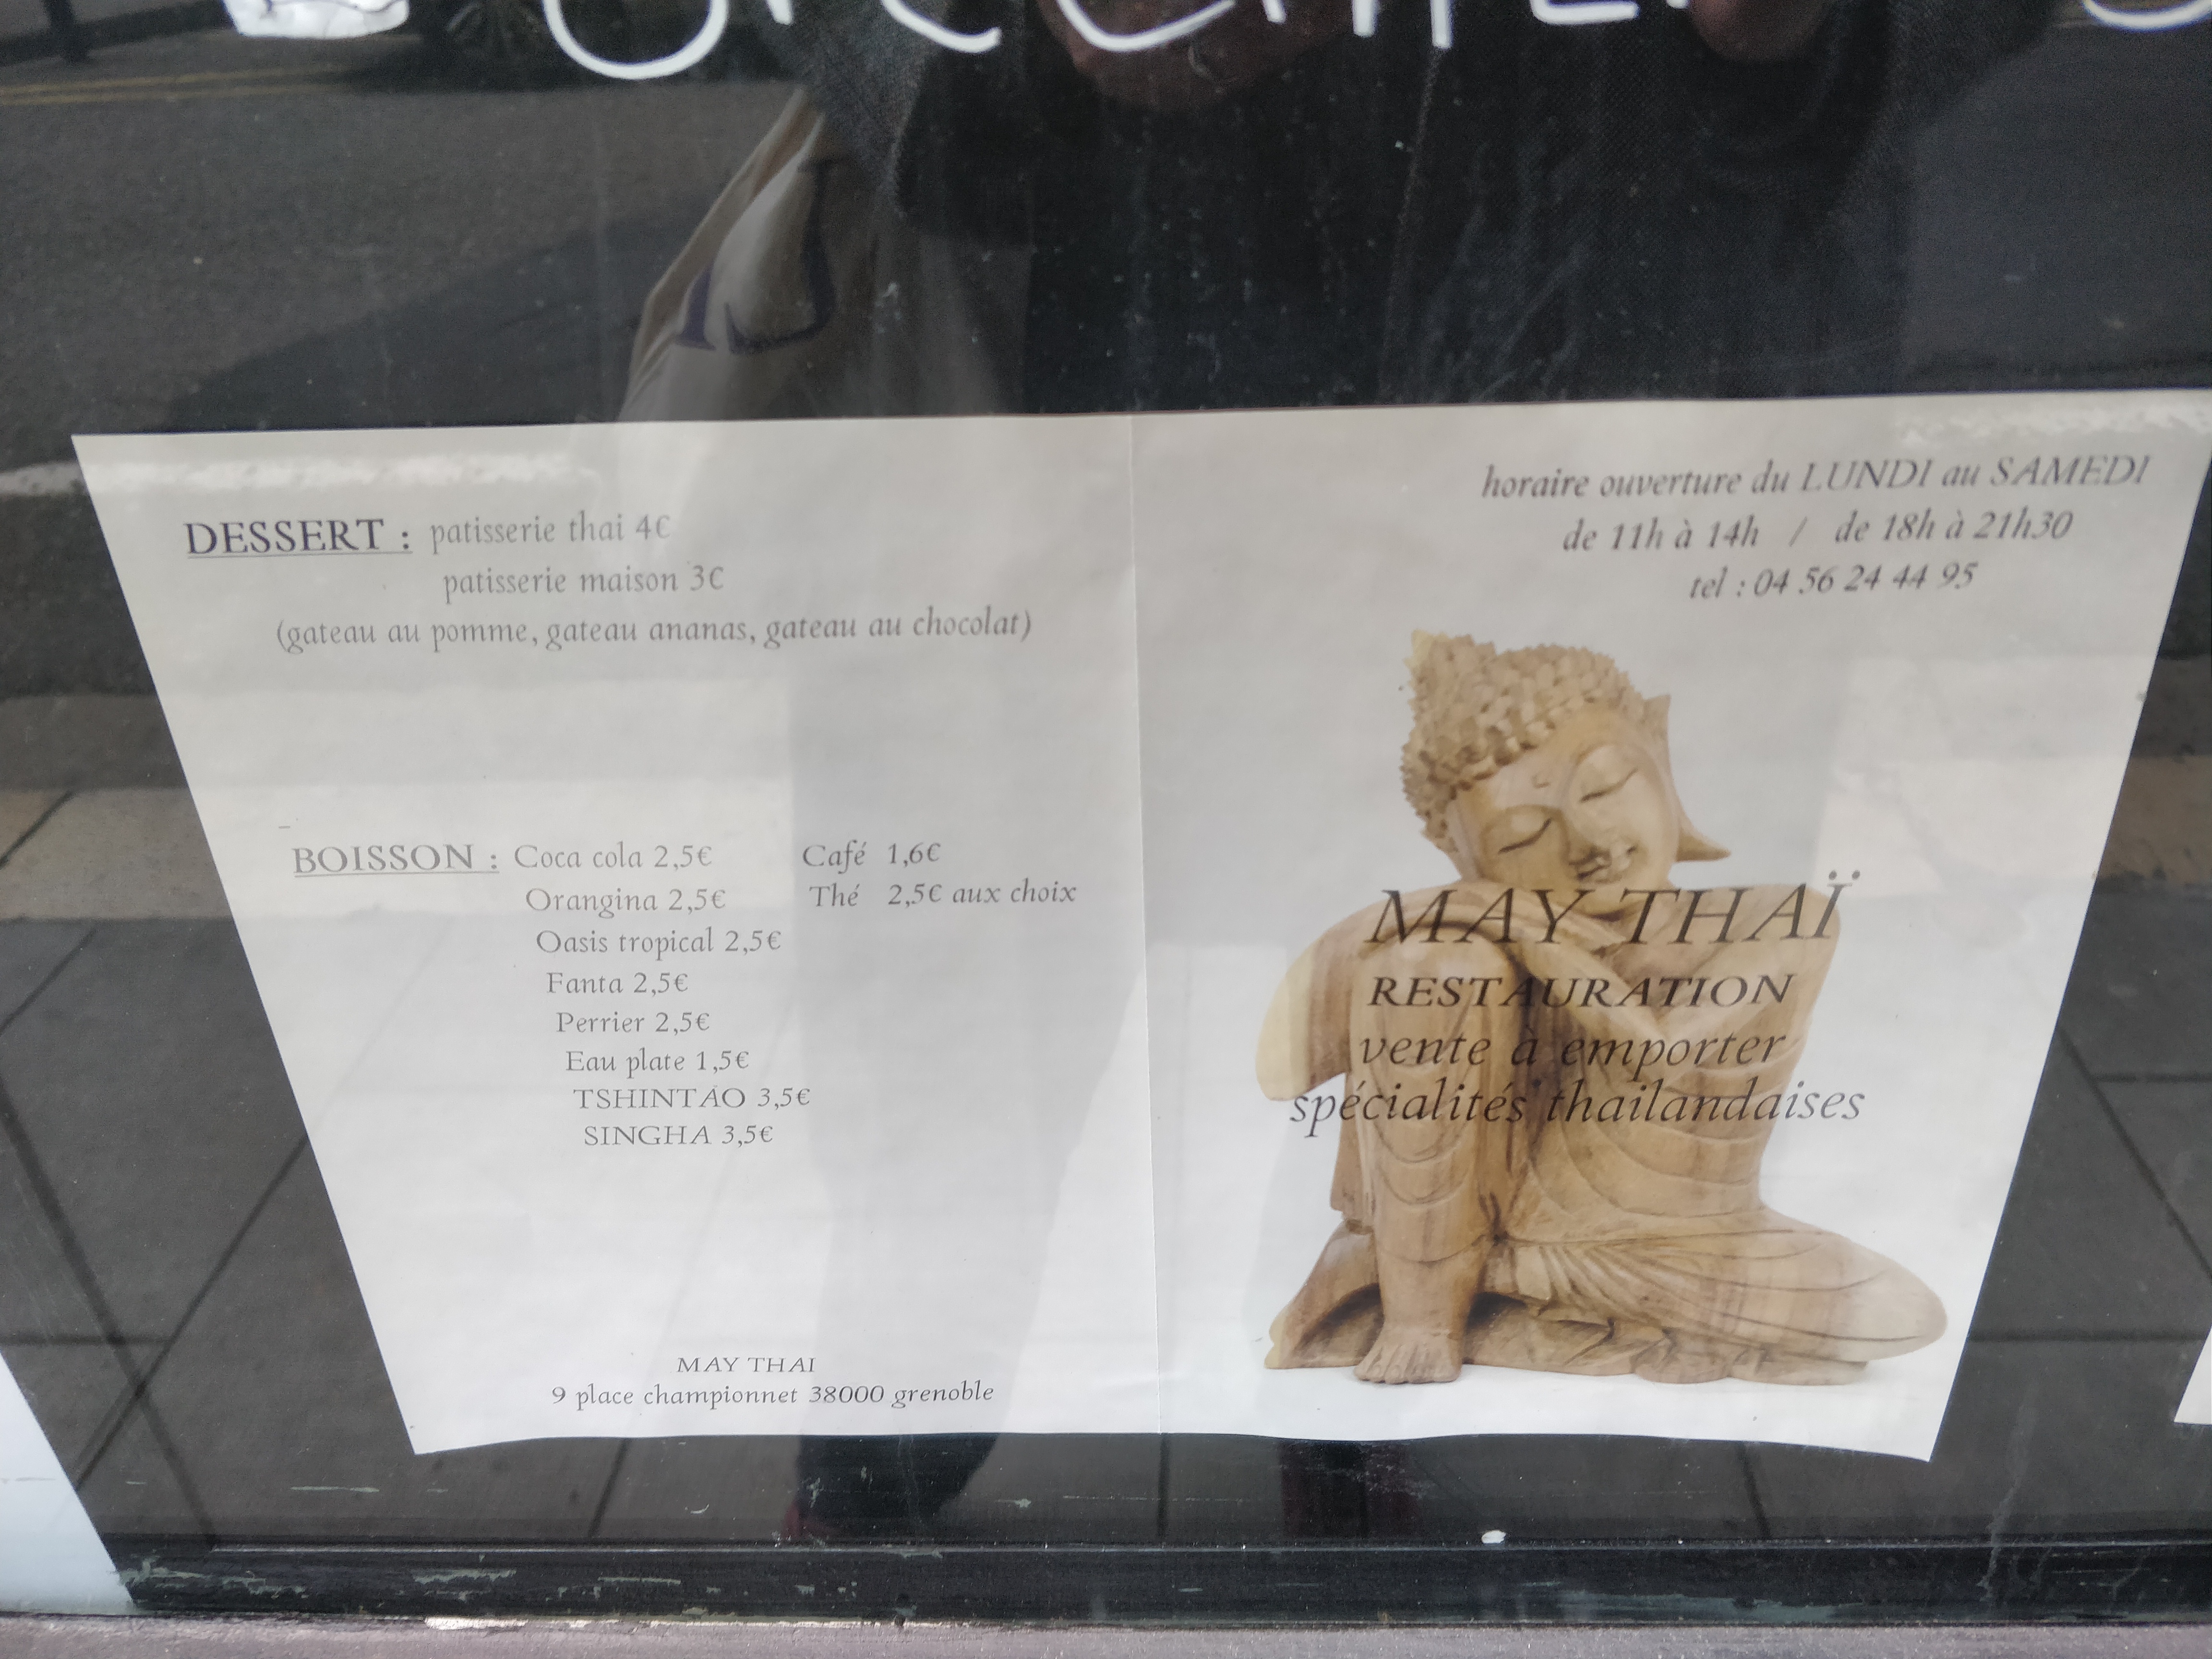 DESSERT : patisserie thai 4€
patisserie maison 3€
(gateau au pomme, gateau ananas, gateau au chocolat)
BOISSON : Coca cola 2,5€ Café 1,6€
Orangina 2,5€ Thé 2,5€ aux choix
Oasis tropical 2,5€
Fanta 2,5€
Perrier 2,5€
Eau plate 1,5€
TSHINTAO 3,5€
SINGHA 3,5€
MAY THAI
9 place championnet 38000 grenoble
horaire ouverture du LUNDI au SAMEDI
de 11h à 14h / de 18h à 21h30
tel : 04 56 24 44 95
MAY THAÏ
RESTAURATION
vente à emporter
spécialités thailandaises